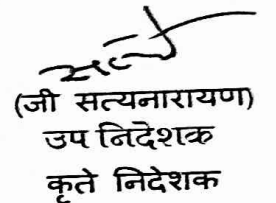 (जी सत्यनारायण)
उप निदेशक
कृते निदेशक